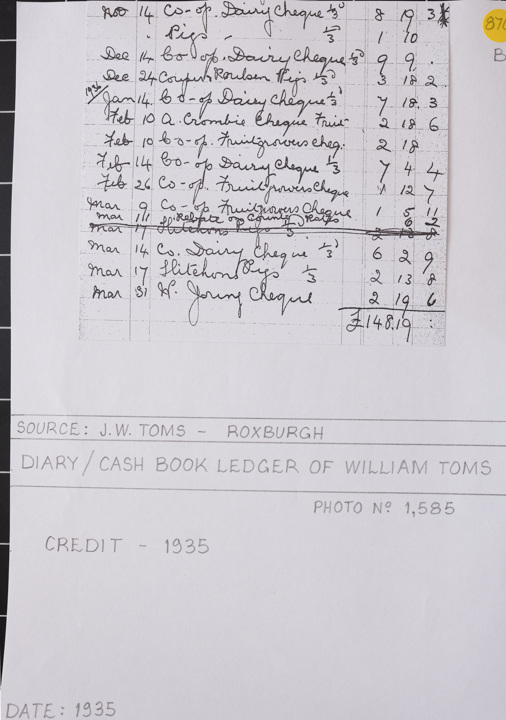 Nov 14 Co-op. Dairy Cheque 1/3 8 19 3
" Pigs - 1/3 1 10
Dec 14 Co-op. Dairy Cheque 1/3 9 9 .
Dec 24 Pigs 1/3 3 18 2
Jan 14. Co-op Dairy Cheque 1/3 7 18. 3
Feb 10 A. Crombie Cheque Fruit 2 18 6
Feb 10 Co-op. Fruitgrowers cheq. 2 18
Feb 14 Co-op Dairy Cheque 1/3 7 4 4
Feb 26 Co-op. Fruitgrowers Cheque 12 7
Mar 9 Co-op Fruitgrowers Cheque 1 5 11
Mar 111 Rebate op County Rates 6 2
Mar 17 Hitchons Pigs 1/3 2 13 8
Mar 14 Co. Dairy Cheque 1/3 6 2 9
Mar 17 Hitchons Pigs 1/3 2 13 8
Mar 31 Cheque 2 19 6
£148.19 :
870
B
SOURCE: J.W. TOMS - ROXBURGH
DIARY/CASH BOOK LEDGER OF WILLIAM TOMS
PHOTO Nº 1,585
CREDIT - 1935
DATE: 1935